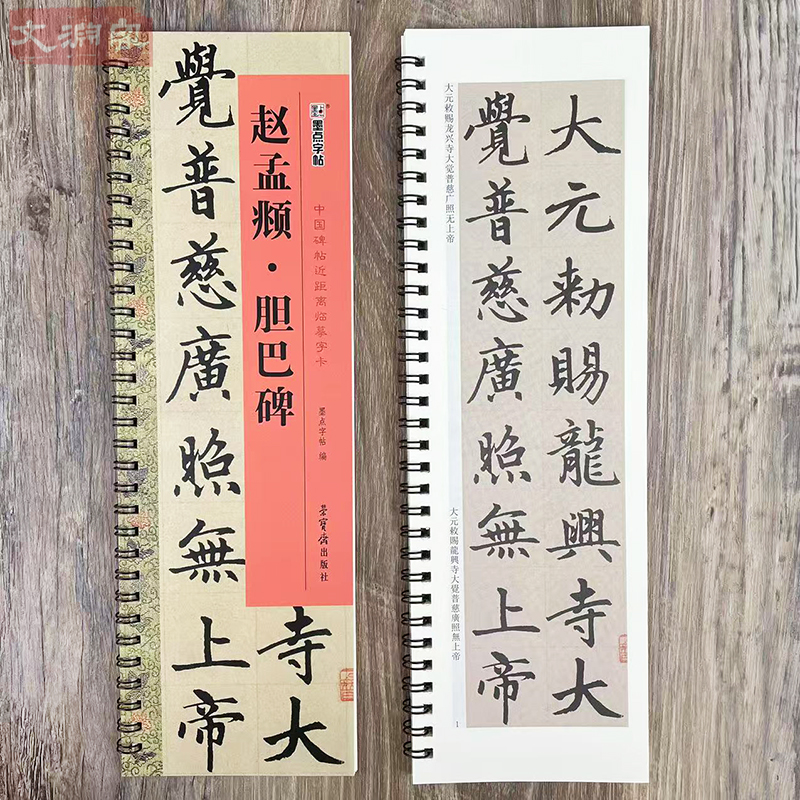 文渊阁
覺普慈廣照無上帝
寺大
墨点字帖
赵孟頫·胆巴碑
中国碑帖近距离临摹字卡
墨点字帖 编
荣宝斋出版社
大元敕赐龙兴寺大觉普慈广照无上帝
大元敕賜龍興寺大
覺普慈廣照無上帝
大元敕賜龍興寺大覺普慈廣照無上帝
1